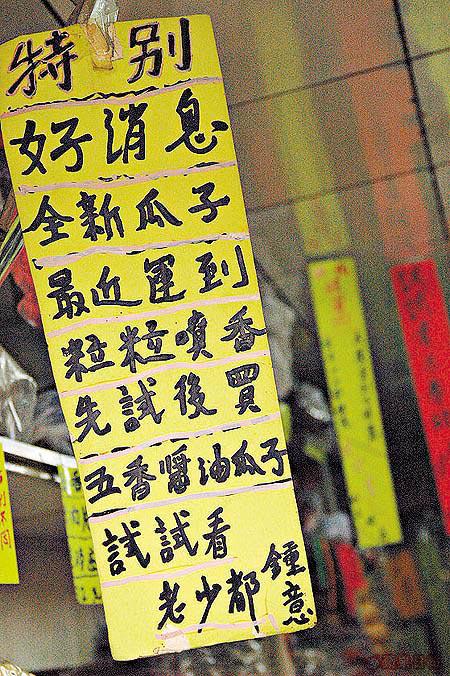 特別
好消息
全新瓜子
最近運到
粒粒噴香
先試後買
五香醬油瓜子
試試看
老少都鍾意